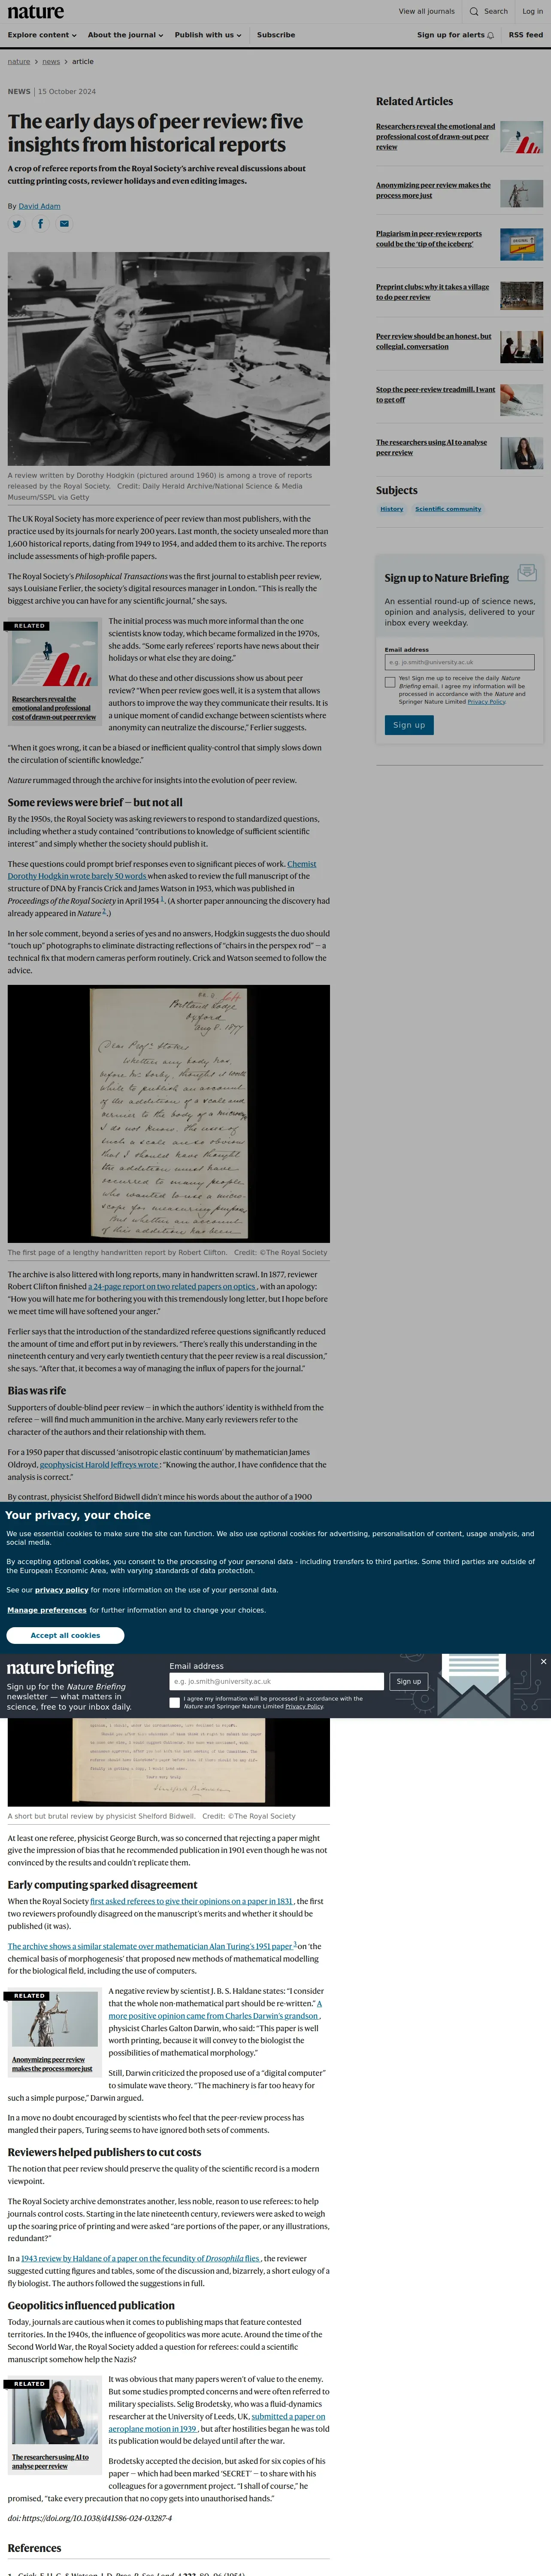 nature
View all journals
Search
Log in
Explore content
About the journal
Publish with us
Subscribe
Sign up for alerts
RSS feed
nature
news
article
NEWS
15 October 2024
The early days of peer review: five
insights from historical reports
A crop of referee reports from the Royal Society's archive reveal discussions about
cutting printing costs, reviewer holidays and even editing images.
By David Adam
A review written by Dorothy Hodgkin (pictured around 1960) is among a trove of reports
released by the Royal Society. Credit: Daily Herald Archive/National Science & Media
Museum/SSPL via Getty
The UK Royal Society has more experience of peer review than most publishers, with the
practice used by its journals for nearly 200 years. Last month, the society unsealed more than
1,600 historical reports, dating from 1949 to 1954, and added them to its archive. The reports
include assessments of high-profile papers.
The Royal Society's Philosophical Transactions was the first journal to establish peer review,
says Louisiane Ferlier, the society's digital resources manager in London. "This is really the
biggest archive you can have for any scientific journal," she says.
RELATED
Researchers reveal the
emotional and professional
cost of drawn-out peer review
The initial process was much more informal than the one
scientists know today, which became formalized in the 1970s,
she adds. "Some early referees' reports have news about their
holidays or what else they are doing."
What do these and other discussions show us about peer
review? "When peer review goes well, it is a system that allows
authors to improve the way they communicate their results. It is
a unique moment of candid exchange between scientists where
anonymity can neutralize the discourse," Ferlier suggests.
"When it goes wrong, it can be a biased or inefficient quality-control that simply slows down
the circulation of scientific knowledge."
Nature rummaged through the archive for insights into the evolution of peer review.
Some reviews were brief — but not all
By the 1950s, the Royal Society was asking reviewers to respond to standardized questions,
including whether a study contained "contributions to knowledge of sufficient scientific
interest" and simply whether the society should publish it.
These questions could prompt brief responses even to significant pieces of work. Chemist
Dorothy Hodgkin wrote barely 50 words when asked to review the full manuscript of the
structure of DNA by Francis Crick and James Watson in 1953, which was published in
Proceedings of the Royal Society in April 1954 1. (A shorter paper announcing the discovery had
already appeared in Nature 2.)
In her sole comment, beyond a series of yes and no answers, Hodgkin suggests the duo should
"touch up" photographs to eliminate distracting reflections of "chairs in the perspex rod" — a
technical fix that modern cameras perform routinely. Crick and Watson seemed to follow the
advice.
Portland Lodge
Oxford
Dear Prof. Stokes
The first page of a lengthy handwritten report by Robert Clifton. Credit: ©The Royal Society
The archive is also littered with long reports, many in handwritten scrawl. In 1877, reviewer
Robert Clifton finished a 24-page report on two related papers on optics, with an apology:
"How you will hate me for bothering you with this tremendously long letter, but I hope before
we meet time will have softened your anger."
Ferlier says that the introduction of the standardized referee questions significantly reduced
the amount of time and effort put in by reviewers. "There's really this understanding in the
nineteenth century and very early twentieth century that the peer review is a real discussion,"
she says. "After that, it becomes a way of managing the influx of papers for the journal."
Bias was rife
Supporters of double-blind peer review — in which the authors' identity is withheld from the
referee — will find much ammunition in the archive. Many early reviewers refer to the
character of the authors and their relationship with them.
For a 1950 paper that discussed 'anisotropic elastic continuum' by mathematician James
Oldroyd, geophysicist Harold Jeffreys wrote: "Knowing the author, I have confidence that the
analysis is correct."
By contrast, physicist Shelford Bidwell didn't mince his words about the author of a 1900
Your privacy, your choice
We use essential cookies to make sure the site can function. We also use optional cookies for advertising, personalisation of content, usage analysis, and
social media.
By accepting optional cookies, you consent to the processing of your personal data - including transfers to third parties. Some third parties are outside of
the European Economic Area, with varying standards of data protection.
See our privacy policy for more information on the use of your personal data.
Manage preferences for further information and to change your choices.
Accept all cookies
nature briefing
Sign up for the Nature Briefing
newsletter — what matters in
science, free to your inbox daily.
Email address
e.g. jo.smith@university.ac.uk
Sign up
I agree my information will be processed in accordance with the
Nature and Springer Nature Limited Privacy Policy.
A short but brutal review by physicist Shelford Bidwell. Credit: ©The Royal Society
At least one referee, physicist George Burch, was so concerned that rejecting a paper might
give the impression of bias that he recommended publication in 1901 even though he was not
convinced by the results and couldn't replicate them.
Early computing sparked disagreement
When the Royal Society first asked referees to give their opinions on a paper in 1831, the first
two reviewers profoundly disagreed on the manuscript's merits and whether it should be
published (it was).
The archive shows a similar stalemate over mathematician Alan Turing's 1951 paper 3 on 'the
chemical basis of morphogenesis' that proposed new methods of mathematical modelling
for the biological field, including the use of computers.
RELATED
Anonymizing peer review
makes the process more just
A negative review by scientist J. B. S. Haldane states: "I consider
that the whole non-mathematical part should be re-written." A
more positive opinion came from Charles Darwin's grandson,
physicist Charles Galton Darwin, who said: "This paper is well
worth printing, because it will convey to the biologist the
possibilities of mathematical morphology."
Still, Darwin criticized the proposed use of a "digital computer"
to simulate wave theory. "The machinery is far too heavy for
such a simple purpose," Darwin argued.
In a move no doubt encouraged by scientists who feel that the peer-review process has
mangled their papers, Turing seems to have ignored both sets of comments.
Reviewers helped publishers to cut costs
The notion that peer review should preserve the quality of the scientific record is a modern
viewpoint.
The Royal Society archive demonstrates another, less noble, reason to use referees: to help
journals control costs. Starting in the late nineteenth century, reviewers were asked to weigh
up the soaring price of printing and were asked "are portions of the paper, or any illustrations,
redundant?"
In a 1943 review by Haldane of a paper on the fecundity of Drosophila flies, the reviewer
suggested cutting figures and tables, some of the discussion and, bizarrely, a short eulogy of a
fly biologist. The authors followed the suggestions in full.
Geopolitics influenced publication
Today, journals are cautious when it comes to publishing maps that feature contested
territories. In the 1940s, the influence of geopolitics was more acute. Around the time of the
Second World War, the Royal Society added a question for referees: could a scientific
manuscript somehow help the Nazis?
RELATED
The researchers using AI to
analyse peer review
It was obvious that many papers weren't of value to the enemy.
But some studies prompted concerns and were often referred to
military specialists. Selig Brodetsky, who was a fluid-dynamics
researcher at the University of Leeds, UK, submitted a paper on
aeroplane motion in 1939, but after hostilities began he was told
its publication would be delayed until after the war.
Brodetsky accepted the decision, but asked for six copies of his
paper — which had been marked 'SECRET' — to share with his
colleagues for a government project. "I shall of course," he
promised, "take every precaution that no copy gets into unauthorised hands."
doi: https://doi.org/10.1038/d41586-024-03287-4
References
Related Articles
Researchers reveal the emotional and
professional cost of drawn-out peer
review
Anonymizing peer review makes the
process more just
Plagiarism in peer-review reports
could be the 'tip of the iceberg'
Preprint clubs: why it takes a village
to do peer review
Peer review should be an honest, but
collegial, conversation
Stop the peer-review treadmill. I want
to get off
The researchers using AI to analyse
peer review
Subjects
History
Scientific community
Sign up to Nature Briefing
An essential round-up of science news,
opinion and analysis, delivered to your
inbox every weekday.
Email address
e.g. jo.smith@university.ac.uk
Yes! Sign me up to receive the daily Nature
Briefing email. I agree my information will be
processed in accordance with the Nature and
Springer Nature Limited Privacy Policy.
Sign up